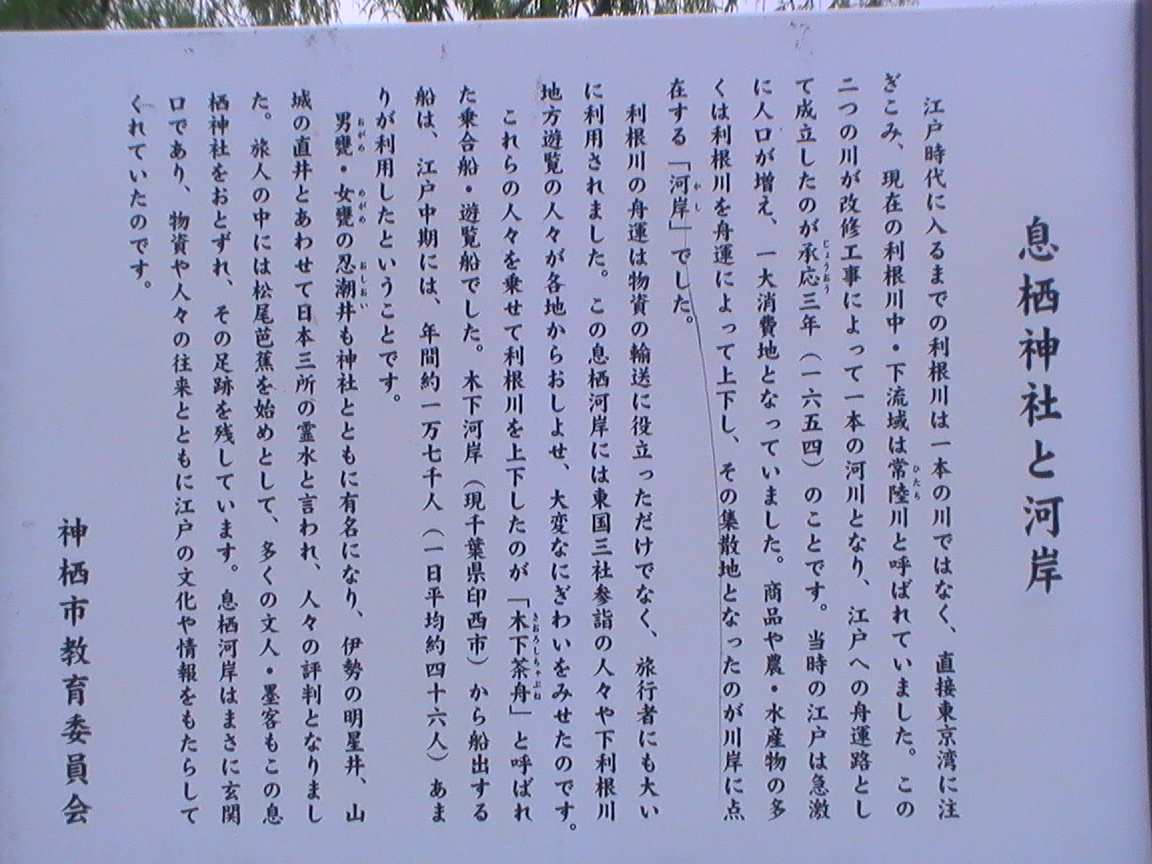 息栖神社と河岸
江戸時代に入るまでの利根川は一本の川ではなく、直接東京湾に注
ぎこみ、現在の利根川中・下流域は常陸川と呼ばれていました。この
ひたち
二つの川が改修工事によって一本の河川となり、江戸への舟運路とし
て成立したのが承応三年（一六五四）のことです。当時の江戸は急激
じょうおう
に人口が増え、一大消費地となっていました。商品や農・水産物の多
くは利根川を舟運によって上下し、その集散地となったのが川岸に点
在する「河岸」でした。
かし
利根川の舟運は物資の輸送に役立っただけでなく、旅行者にも大い
に利用されました。この息栖河岸には東国三社参詣の人々や下利根川
地方遊覧の人々が各地からおしよせ、大変なにぎわいをみせたのです。
これらの人々を乗せて利根川を上下したのが「木下茶舟」と呼ばれ
きおろしちゃぶね
た乗合船・遊覧船でした。木下河岸（現千葉県印西市）から船出する
船は、江戸中期には、年間約一万七千人（一日平均約四十六人）あま
りが利用したということです。
男甕・女甕の忍潮井も神社とともに有名になり、伊勢の明星井、山
おがめ めがめ おしおい
城の直井とあわせて日本三所の霊水と言われ、人々の評判となりまし
た。旅人の中には松尾芭蕉を始めとして、多くの文人・墨客もこの息
栖神社をおとずれ、その足跡を残しています。息栖河岸はまさに玄関
口であり、物資や人々の往来とともに江戸の文化や情報をもたらして
くれていたのです。
神栖市教育委員会